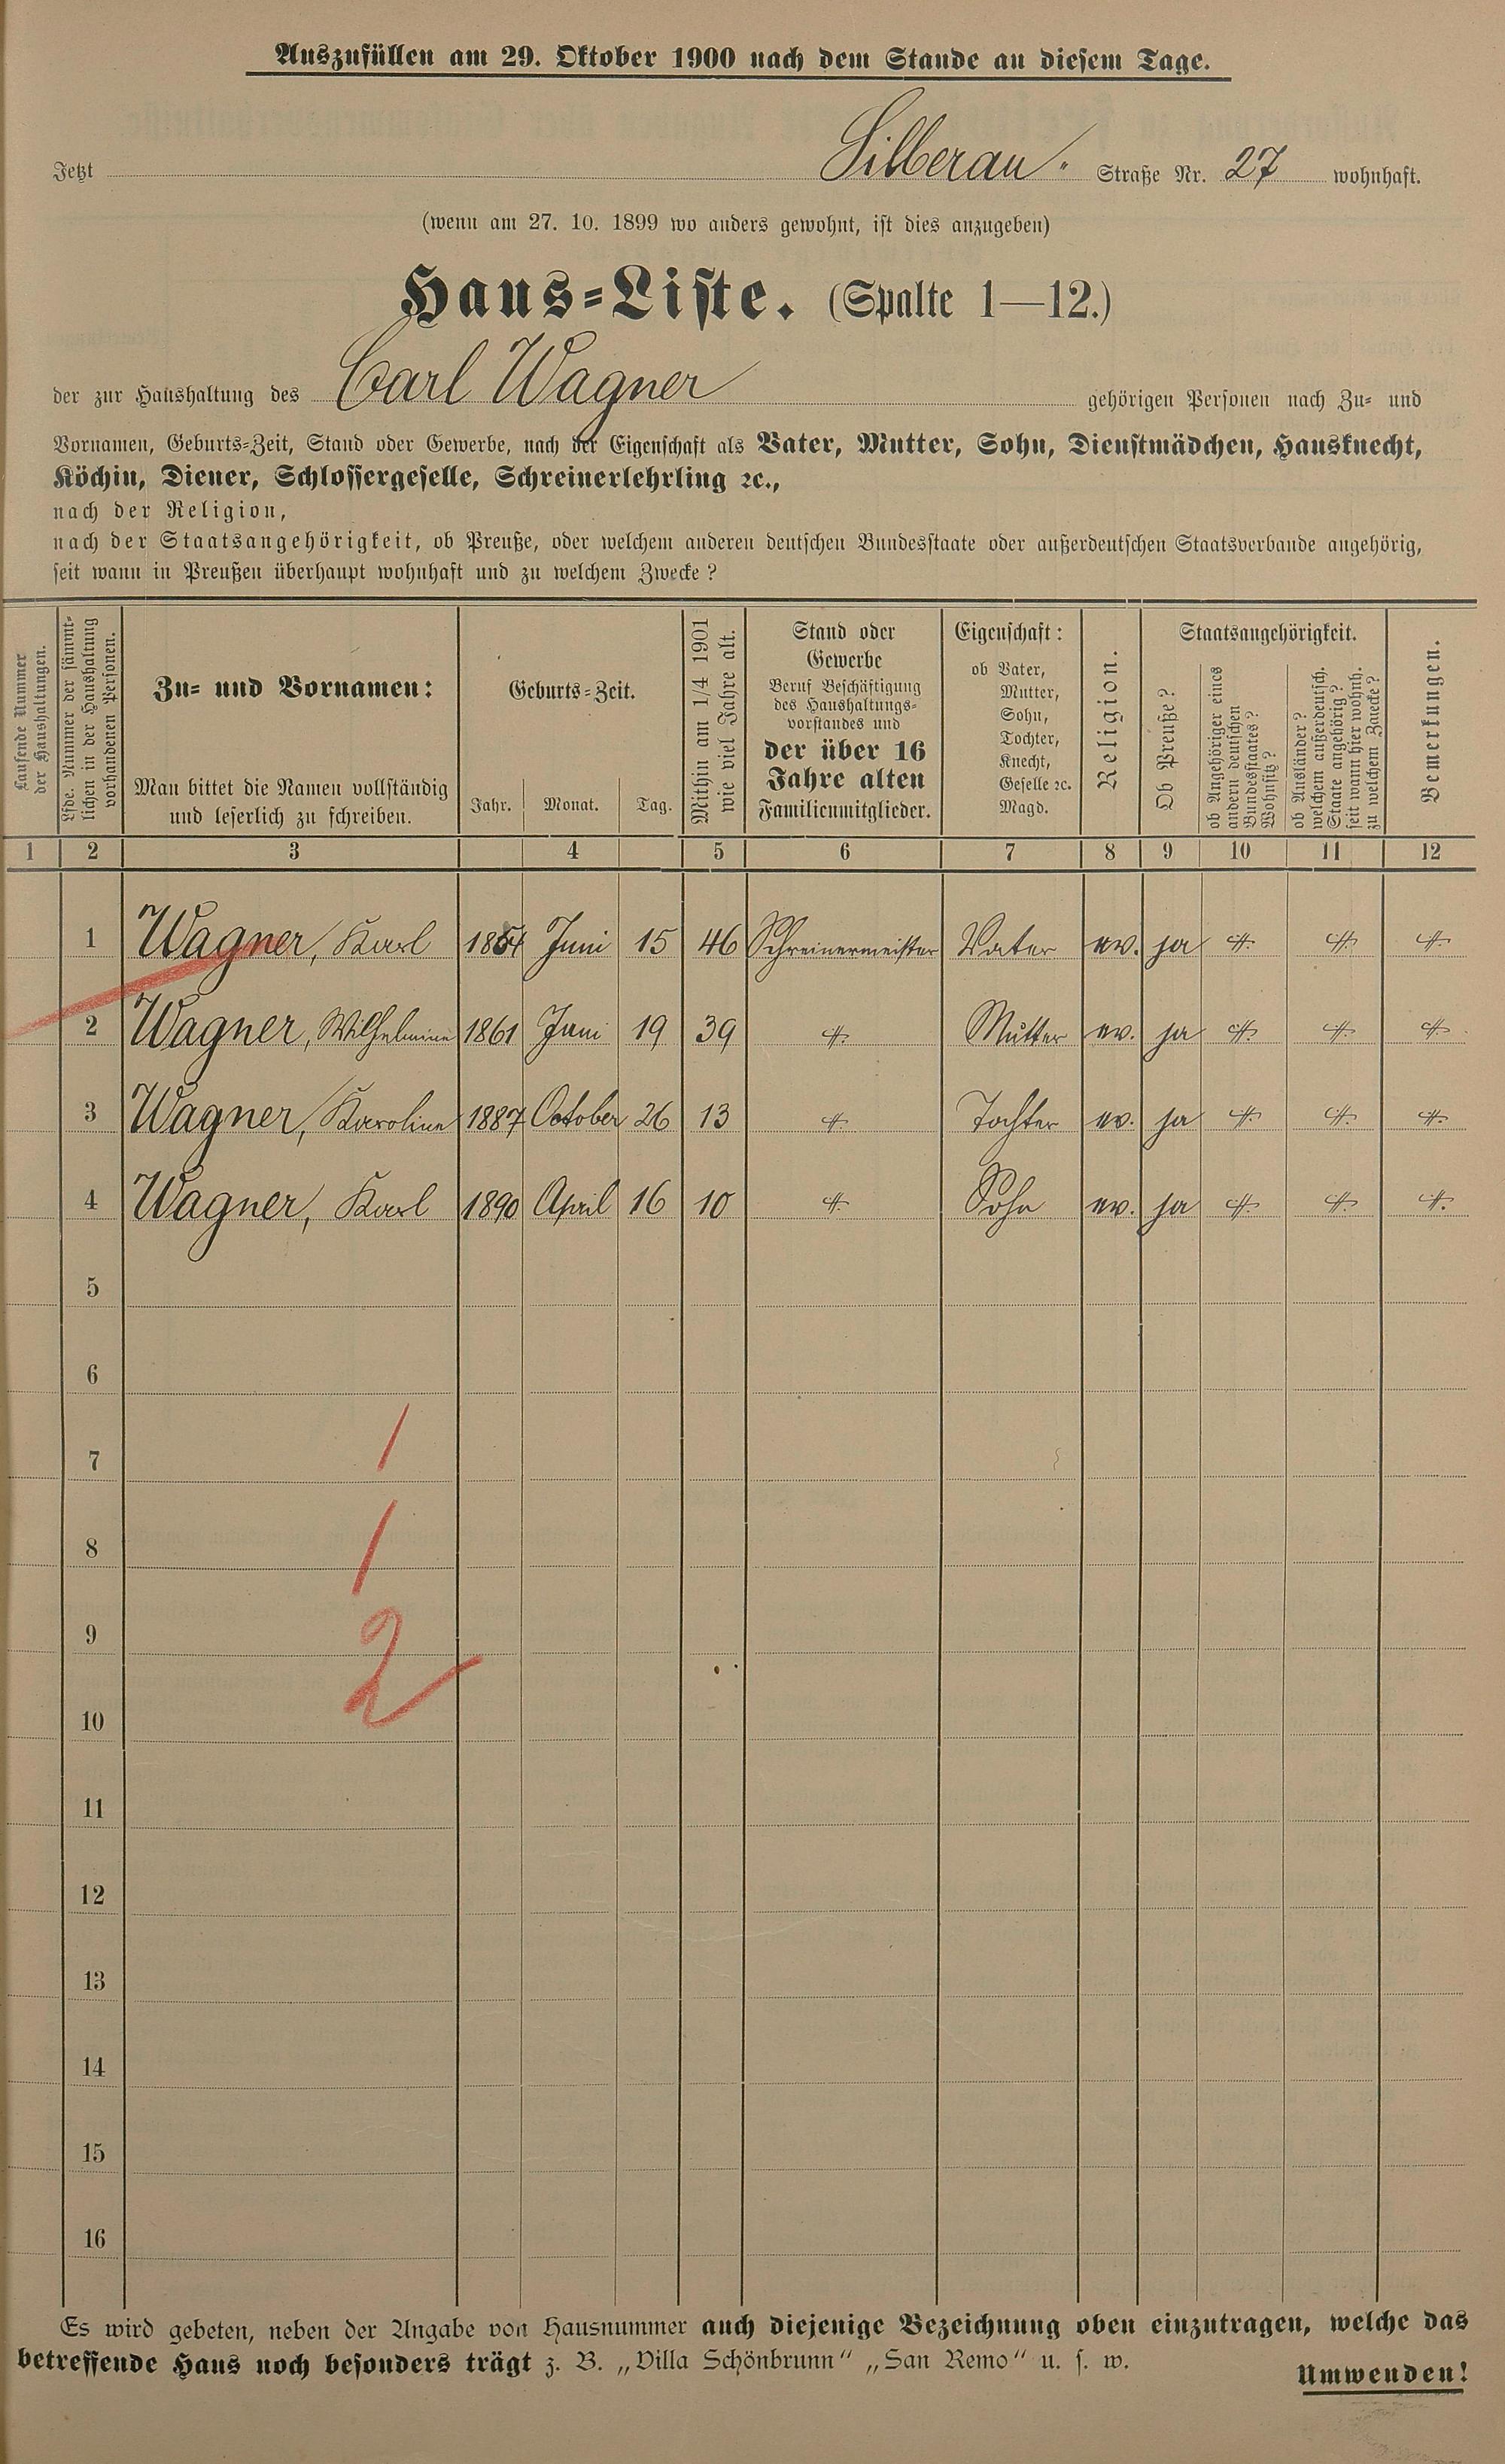 Auszufüllen am 29. Oktober 1900 nach dem Stande an diesem Tage.
Jetzt Silberau Straße Nr. 27 wohnhaft.
(wenn am 27. 10. 1899 wo anders gewohnt, ist dies anzugeben)
Haus-Liste. (Spalte 1—12.)
der zur Haushaltung des Carl Wagner gehörigen Personen nach Zu- und
Vornamen, Geburts-Zeit, Stand oder Gewerbe, nach der Eigenschaft als Vater, Mutter, Sohn, Dienstmädchen, Hausknecht,
Köchin, Diener, Schlossergeselle, Schreinerlehrling ꝛc.,
nach der Religion,
nach der Staatsangehörigkeit, ob Preuße, oder welchem anderen deutschen Bundesstaate oder außerdeutschen Staatsverbande angehörig,
seit wann in Preußen überhaupt wohnhaft und zu welchem Zwecke?
Laufende Nummer
der Haushaltungen.
Lfde. Nummer der sämmt-
lichen in der Haushaltung
vorhandenen Personen.
Zu- und Vornamen:
Man bittet die Namen vollständig
und leserlich zu schreiben.
Geburts-Zeit.
Jahr. Monat. Tag.
Mithin am 1/4 1901
wie viel Jahre alt.
Stand oder
Gewerbe
Beruf Beschäftigung
des Haushaltungs-
vorstandes und
der über 16
Jahre alten
Familienmitglieder.
Eigenschaft:
ob Vater,
Mutter,
Sohn,
Tochter,
Knecht,
Geselle ꝛc.
Magd.
Religion.
Staatsangehörigkeit.
Ob Preuße?
ob Angehöriger eines
andern deutschen
Bundesstaates?
Wohnsitz?
ob Ausländer?
welchem außerdeutsch.
Staate angehörig?
seit wann hier wohnh.
zu welchem Zwecke?
Bemerkungen.
1 2 3 4 5 6 7 8 9 10 11 12
1 Wagner, Karl 1854 Juni 15 46 Schreinermeister Vater ev. ja
2 Wagner, Wilhelmine 1861 Juni 19 39 Mutter ev. ja
3 Wagner, Karoline 1887 October 26 13 Tochter ev. ja
4 Wagner, Karl 1890 April 16 10 Sohn ev. ja
5
6
7 1
8 1
9 2
10
11
12
13
14
15
16
Es wird gebeten, neben der Angabe von Hausnummer auch diejenige Bezeichnung oben einzutragen, welche das
betreffende Haus noch besonders trägt z. B. „Villa Schönbrunn" „San Remo" u. s. w.
Umwenden!